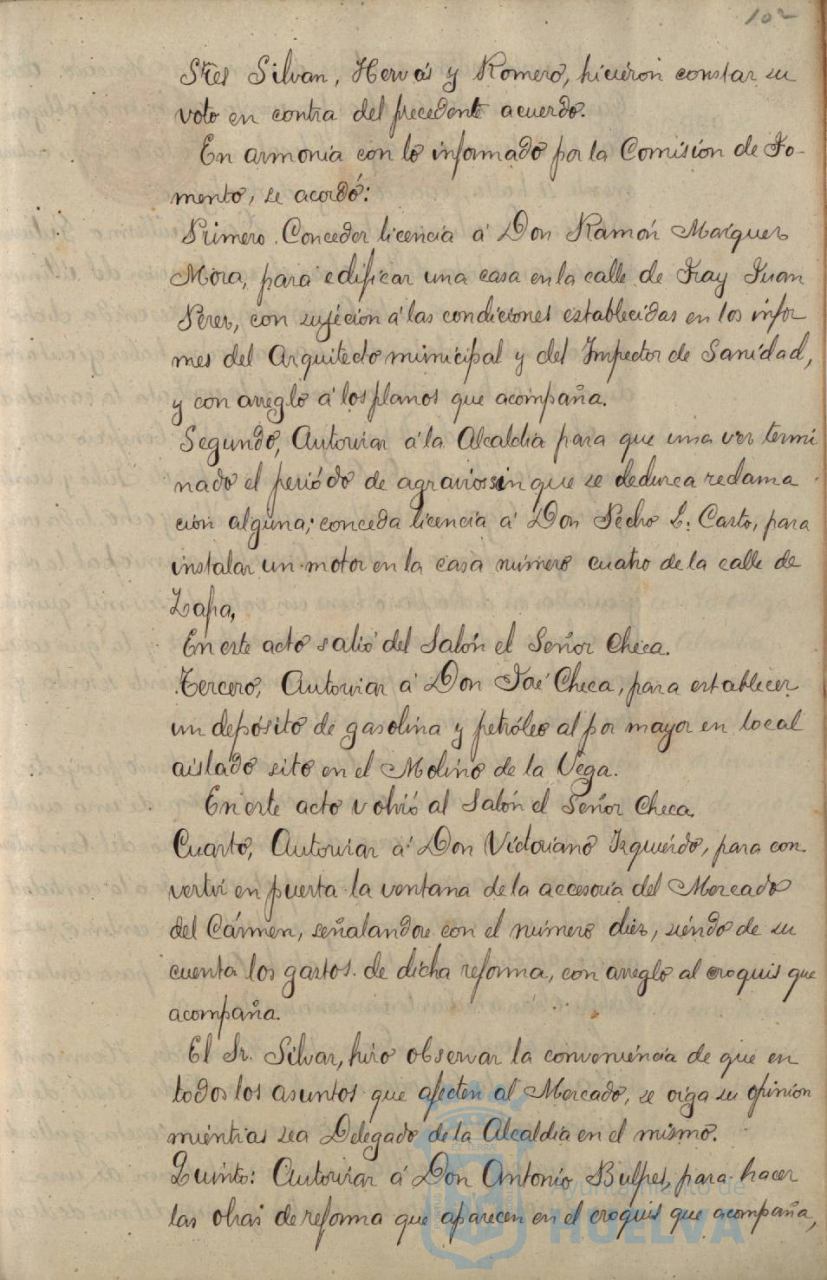 102
Sres Silvan, Hervás y Romero, hicieron constar su
voto en contra del precedente acuerdo.
En armonía con lo informado por la Comisión de Fo-
mento, se acordó:
Primero. Conceder licencia á Don Ramón Márquez
Mora, para edificar una casa en la calle de Fray Juan
Perez, con sujeción á las condiciones establecidas en los infor
mes del Arquitecto municipal y del Inspector de Sanidad,
y con arreglo á los planos que acompaña.
Segundo, Autorizar á la Alcaldía para que una vez termi
nado el periódo de agravios sin que se deduzca reclama
ción alguna; conceda licencia á Don Pedro L. Casto, para
instalar un motor en la casa número cuatro de la calle de
Zafra,
En este acto salió del Salón el Señor Checa.
Tercero, Autorizar á Don José Checa, para establecer
un depósito de gasolina y petróleo al por mayor en local
aislado sito en el Molino de la Vega.
En este acto volvió al Salón el Señor Checa.
Cuarto, Autorizar á Don Victoriano Izquierdo, para con
vertir en puerta la ventana de la accesoria del Mercado
del Cármen, señalandose con el número diez, siendo de su
cuenta los gastos de dicha reforma, con arreglo al croquis que
acompaña.
El Sr. Silvar, hizo observar la conveniencia de que en
todos los asuntos que afecten al Mercado, se oiga su opinion
mientras sea Delegado de la Alcaldía en el mismo.
Quinto: Autorizar á Don Antonio Bulpes, para hacer
las obras de reforma que aparecen en el croquis que acompaña,
Ayuntamiento de
HUELVA